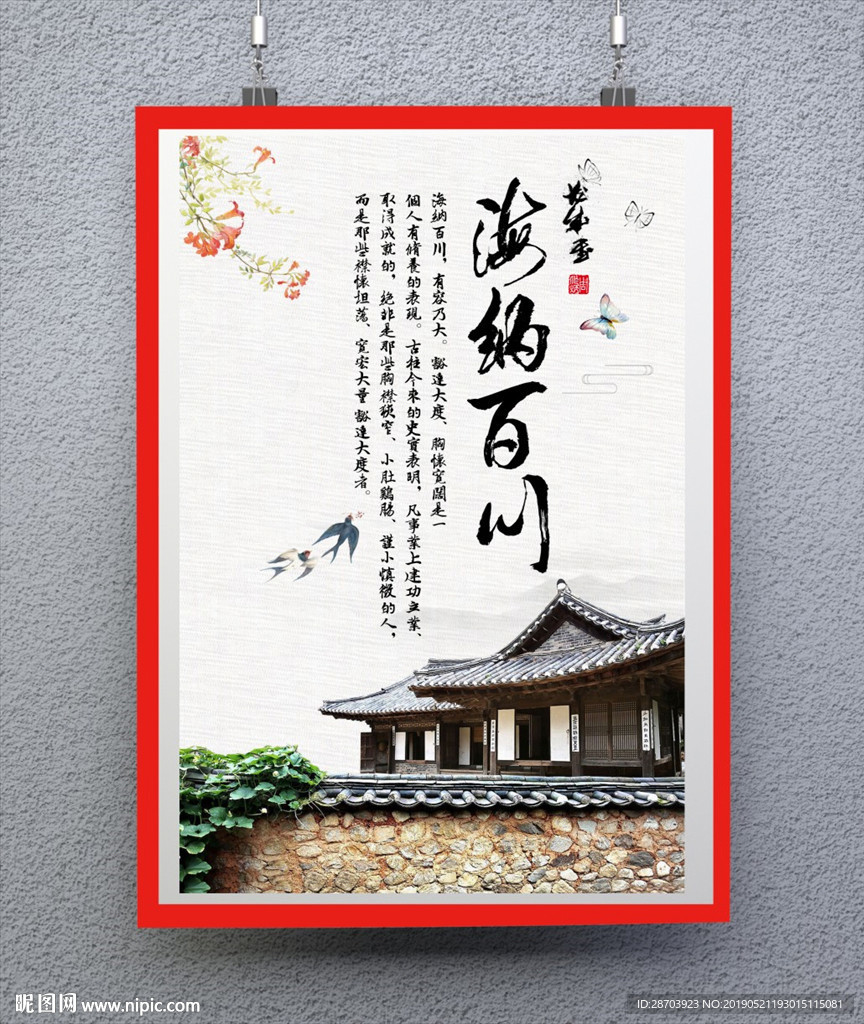 海纳百川
海納百川，有容乃大。豁達大度、胸懷寬闊是一
個人有脩養的表現。古往今來的史實表明，凡事業上建功立業、
取得成就的，絶非是那些胸襟狹窄、小肚鷄腸、謹小慎微的人，
而是那些襟懷坦蕩、寬宏大量 豁達大度者。
昵图网 www.nipic.com
ID:28703923 NO:20190521193015115081